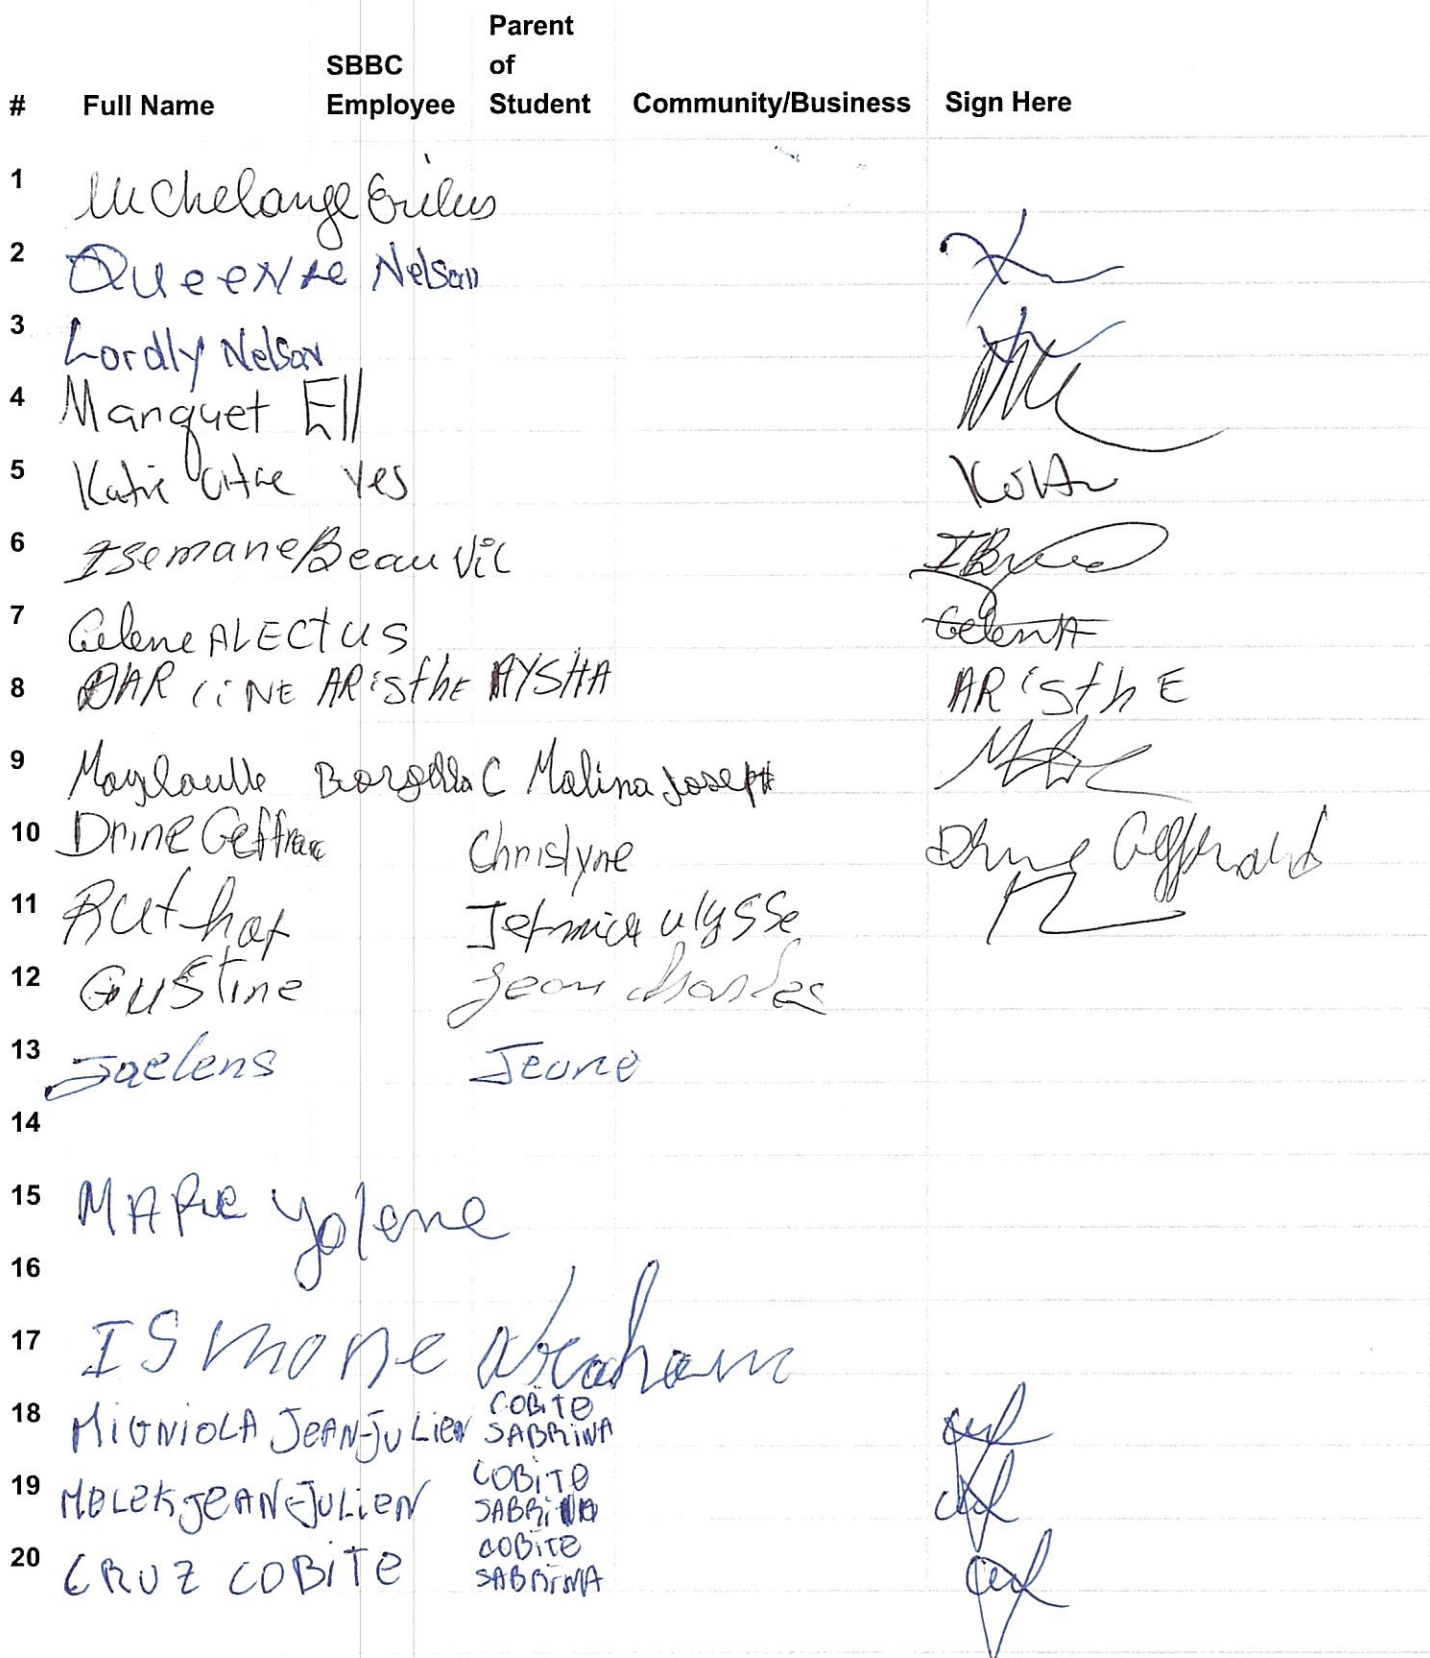 # Full Name SBBC Employee Parent of Student Community/Business Sign Here
1 Michelange Erilus
2 Queenie Nelson
3 Lordly Nelson
4 Manquet Ell
5 Katie Vitke Yes
6 Isemane Beauvil
7 Gelene ALECTUS GelenA
8 DARLiNE ARistHE AYSHA ARisthE
9 Borgella C Malina Joseph
10 Drine Geffrard Christyne Drine Geffrard
11 Ruthaf Jetmick ulysse
12 Gustine Jean charles
13 Jaelens Jeune
14
15 MARIE yolene
16
17 ISmone Abraham
18 MiGNiOLA JEAN-JULIEN COBiTE SABRiNA
19 MELEK JEAN-JULIEN COBiTE SABRiNA
20 CRUZ COBiTE COBiTE SABRiNA